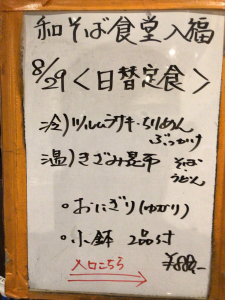 和そば食堂 入福
8/29 <日替定食>
冷)ツルムラサキ・ちりめん
ぶっかけ
温)きざみ昆布 そば・
うどん
・おにぎり(ゆかり)
・小鉢 2品付
入口こちら ¥880-